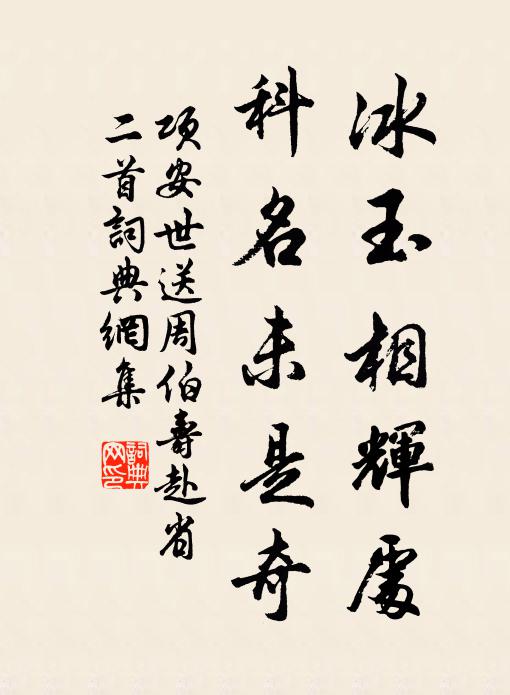 冰玉相輝處
科名未是奇
項安世送周伯壽赴省
二首詞典網集
詞典
网印